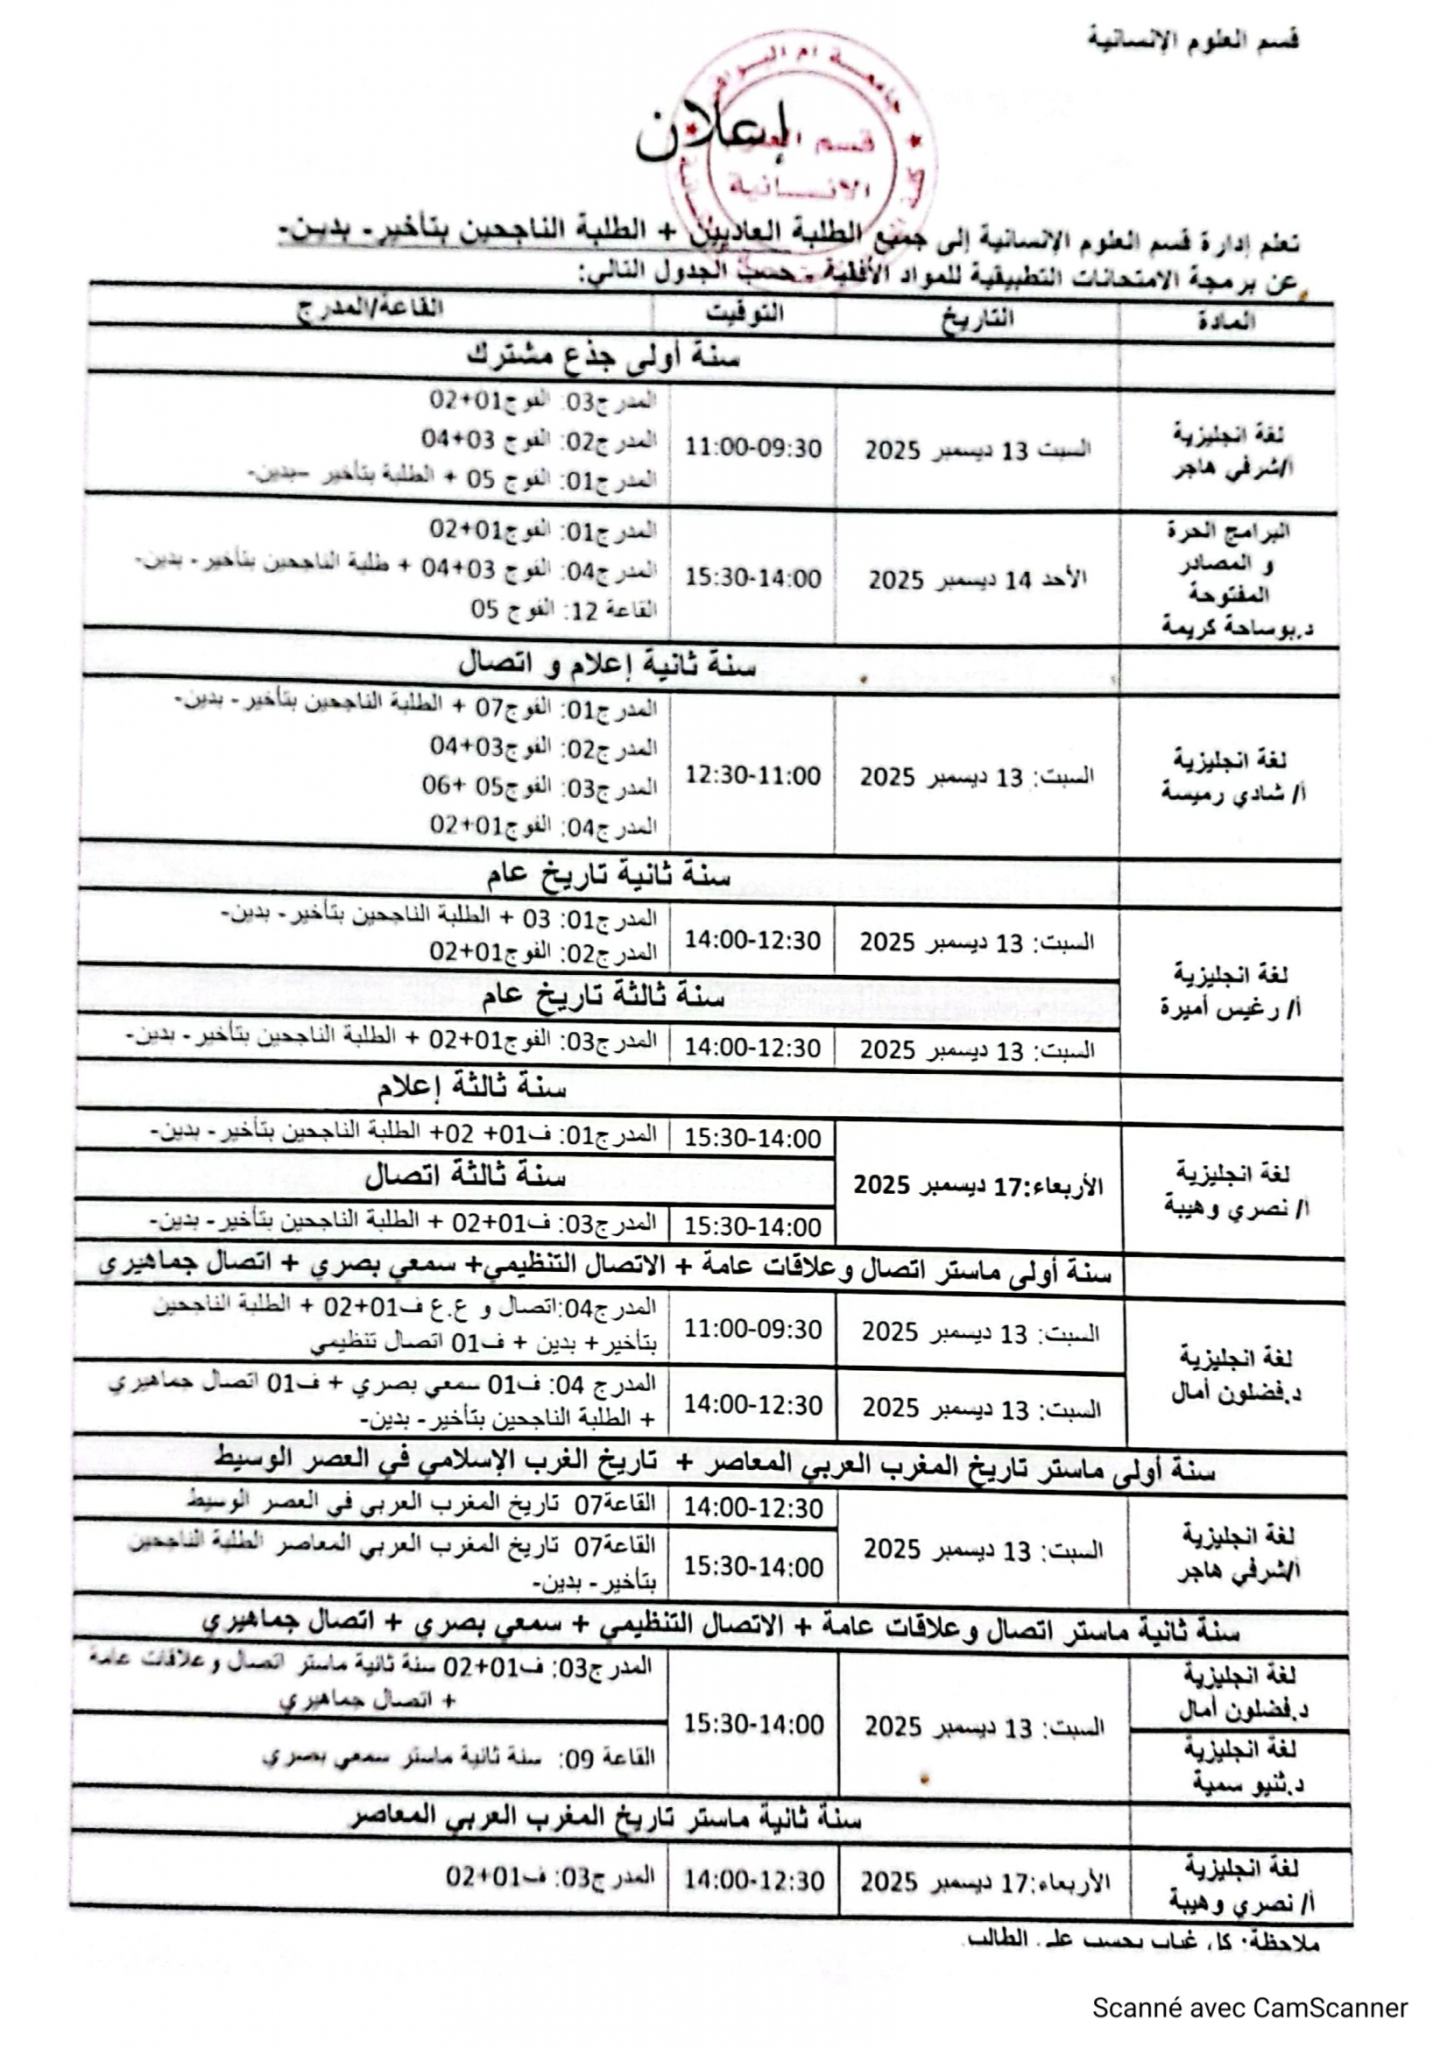 قسم العلوم الإنسانية
جامعة ام البواقي
قسم العلوم
الانسانية
إعلان
تعلم إدارة قسم العلوم الإنسانية إلى جميع الطلبة العاديين + الطلبة الناجحين بتأخير- بدين-
عن برمجة الامتحانات التطبيقية للمواد الأفقية - حسب الجدول التالي:
المادة التاريخ التوقيت القاعة/المدرج
سنة أولى جذع مشترك
لغة انجليزية
أ/شرفي هاجر
السبت 13 ديسمبر 2025
11:00-09:30
المدرج03: الفوج01+02
المدرج02: الفوج 03+04
المدرج01: الفوج 05 + الطلبة بتأخير –بدين-
البرامج الحرة
و المصادر
المفتوحة
د.بوساحة كريمة
الأحد 14 ديسمبر 2025
15:30-14:00
المدرج01: الفوج01+02
المدرج04: الفوج 03+04 + طلبة الناجحين بتأخير- بدين-
القاعة 12: الفوج 05
سنة ثانية إعلام و اتصال
لغة انجليزية
أ/ شادي رميسة
السبت: 13 ديسمبر 2025
12:30-11:00
المدرج01: الفوج07 + الطلبة الناجحين بتأخير- بدين-
المدرج02: الفوج03+04
المدرج03: الفوج05 +06
المدرج04: الفوج01+02
سنة ثانية تاريخ عام
لغة انجليزية
أ/ رغيس أميرة
السبت: 13 ديسمبر 2025
14:00-12:30
المدرج01: 03 + الطلبة الناجحين بتأخير- بدين-
المدرج02: الفوج01+02
سنة ثالثة تاريخ عام
السبت: 13 ديسمبر 2025 14:00-12:30 المدرج03: الفوج01+02 + الطلبة الناجحين بتأخير- بدين-
سنة ثالثة إعلام
لغة انجليزية
أ/ نصري وهيبة
الأربعاء:17 ديسمبر 2025
15:30-14:00 المدرج01: ف01+ 02+ الطلبة الناجحين بتأخير- بدين-
سنة ثالثة اتصال
15:30-14:00 المدرج03: ف01+02 + الطلبة الناجحين بتأخير- بدين-
سنة أولى ماستر اتصال وعلاقات عامة + الاتصال التنظيمي+ سمعي بصري + اتصال جماهيري
لغة انجليزية
د.فضلون أمال
السبت: 13 ديسمبر 2025
11:00-09:30
المدرج04:اتصال و ع.ع ف01+02 + الطلبة الناجحين
بتأخير+ بدين + ف01 اتصال تنظيمي
السبت: 13 ديسمبر 2025
14:00-12:30
المدرج 04: ف01 سمعي بصري + ف01 اتصال جماهيري
+ الطلبة الناجحين بتأخير- بدين-
سنة أولى ماستر تاريخ المغرب العربي المعاصر + تاريخ الغرب الإسلامي في العصر الوسيط
لغة انجليزية
أ/شرفي هاجر
السبت: 13 ديسمبر 2025
14:00-12:30 القاعة07 تاريخ المغرب العربي في العصر الوسيط
15:30-14:00
القاعة07 تاريخ المغرب العربي المعاصر الطلبة الناجحين
بتأخير- بدين-
سنة ثانية ماستر اتصال وعلاقات عامة + الاتصال التنظيمي + سمعي بصري + اتصال جماهيري
لغة انجليزية
د.فضلون أمال
السبت: 13 ديسمبر 2025
15:30-14:00
المدرج03: ف01+02 سنة ثانية ماستر اتصال وعلاقات عامة
+ اتصال جماهيري
لغة انجليزية
د.ثنيو سمية
القاعة 09: سنة ثانية ماستر سمعي بصري
سنة ثانية ماستر تاريخ المغرب العربي المعاصر
لغة انجليزية
أ/ نصري وهيبة
الأربعاء:17 ديسمبر 2025
14:00-12:30
المدرج03: ف01+02
ملاحظة: كل غياب يحسب على الطالب.
Scanné avec CamScanner